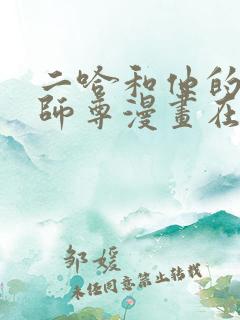 二哈和他的
師尊漫畫在
邹媛
未经同意禁止转载